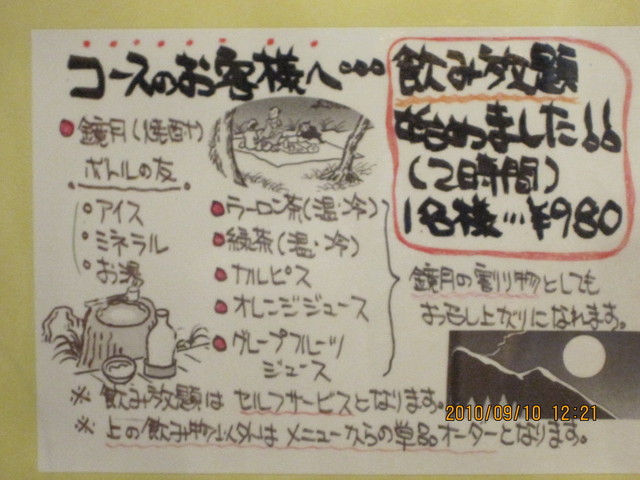 コースのお客様へ・・・
飲み放題
始めました!!
(2時間)
1名様…¥980
鏡月(焼酎)
ボトルの友
・アイス
・ミネラル
・お湯
ウーロン茶(温・冷)
緑茶(温・冷)
カルピス
オレンジジュース
グレープフルーツ
ジュース
鏡月の割り物としても
お召し上がりになれます。
※ 飲み放題は セルフサービスとなります。
※ 上の飲み物以外は メニューからの単品オーダーとなります。
2010/09/10 12:21